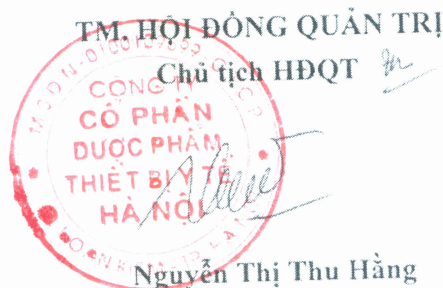 TM. HỘI ĐỒNG QUẢN TRỊ
Chủ tịch HĐQT
CÔNG TY
CỔ PHẦN
DƯỢC PHẨM
THIẾT BỊ Y TẾ
HÀ NỘI
Nguyễn Thị Thu Hằng